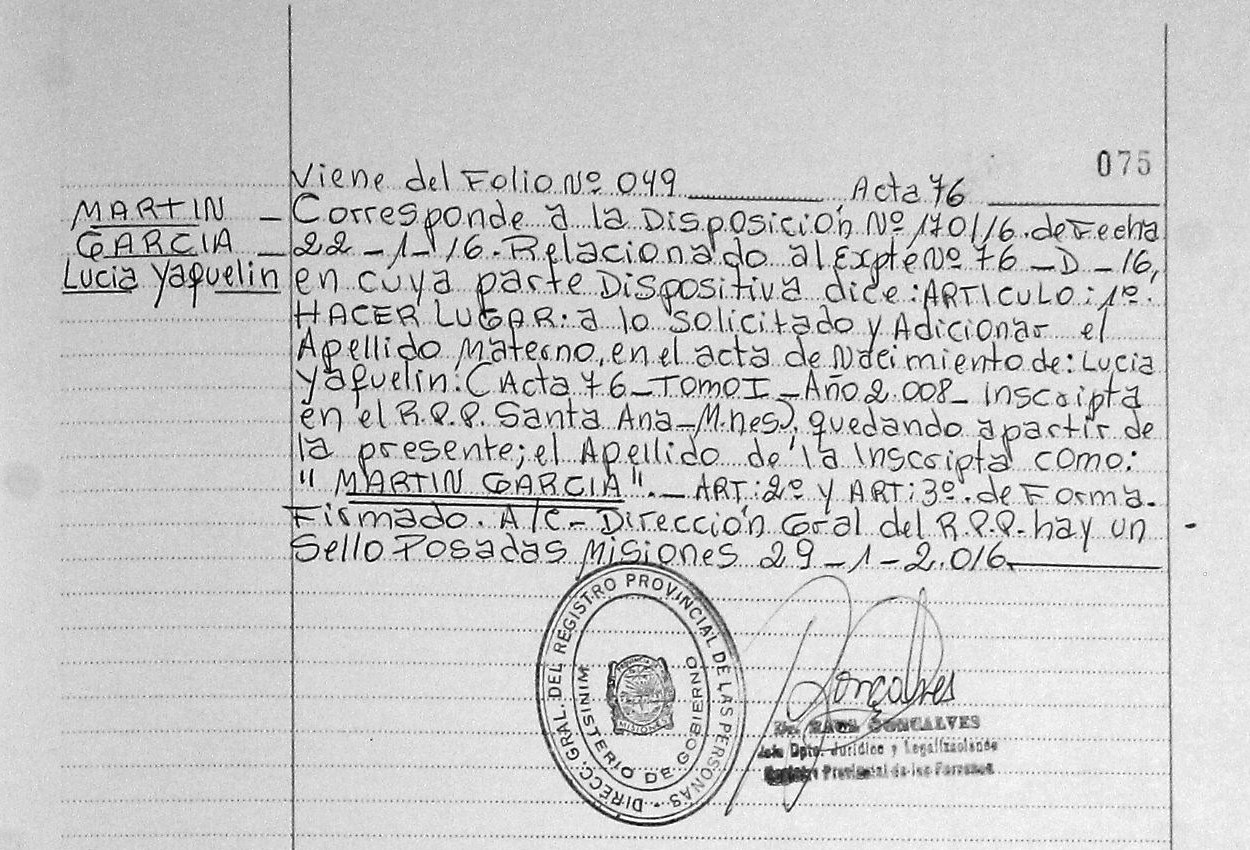 075
Viene del Folio Nº 049 Acta 76
MARTIN _ Corresponde a la Disposición Nº 170/16. de Fecha
GARCIA _ 22 - 1 - 16. Relacionado al Expte Nº 76 - D - 16,
Lucia Yaquelin en cuya parte Dispositiva dice: ARTICULO: 1º:
HACER LUGAR: a lo Solicitado y Adicionar el
Apellido Materno, en el acta de Nacimiento de: Lucia
Yaquelin: (Acta 76 - TOMO I - Año 2.008 - inscripta
en el R.P.P. Santa Ana - M.nes), quedando a partir de
la presente; el Apellido de la Inscripta como:
" MARTIN GARCIA ". _ ART: 2º y ART: 3º. de Forma.
Firmado. A/C - Dirección Gral del R.P.P. hay un
Sello Posadas Misiones 29 - 1 - 2.016.
DIRECC. GRAL. DEL REGISTRO PROVINCIAL DE LAS PERSONAS
MINISTERIO DE GOBIERNO
MISIONES
Goncalves
GONCALVES
Dpto. Jurídico y Legalizaciones
Registro Provincial de las Personas